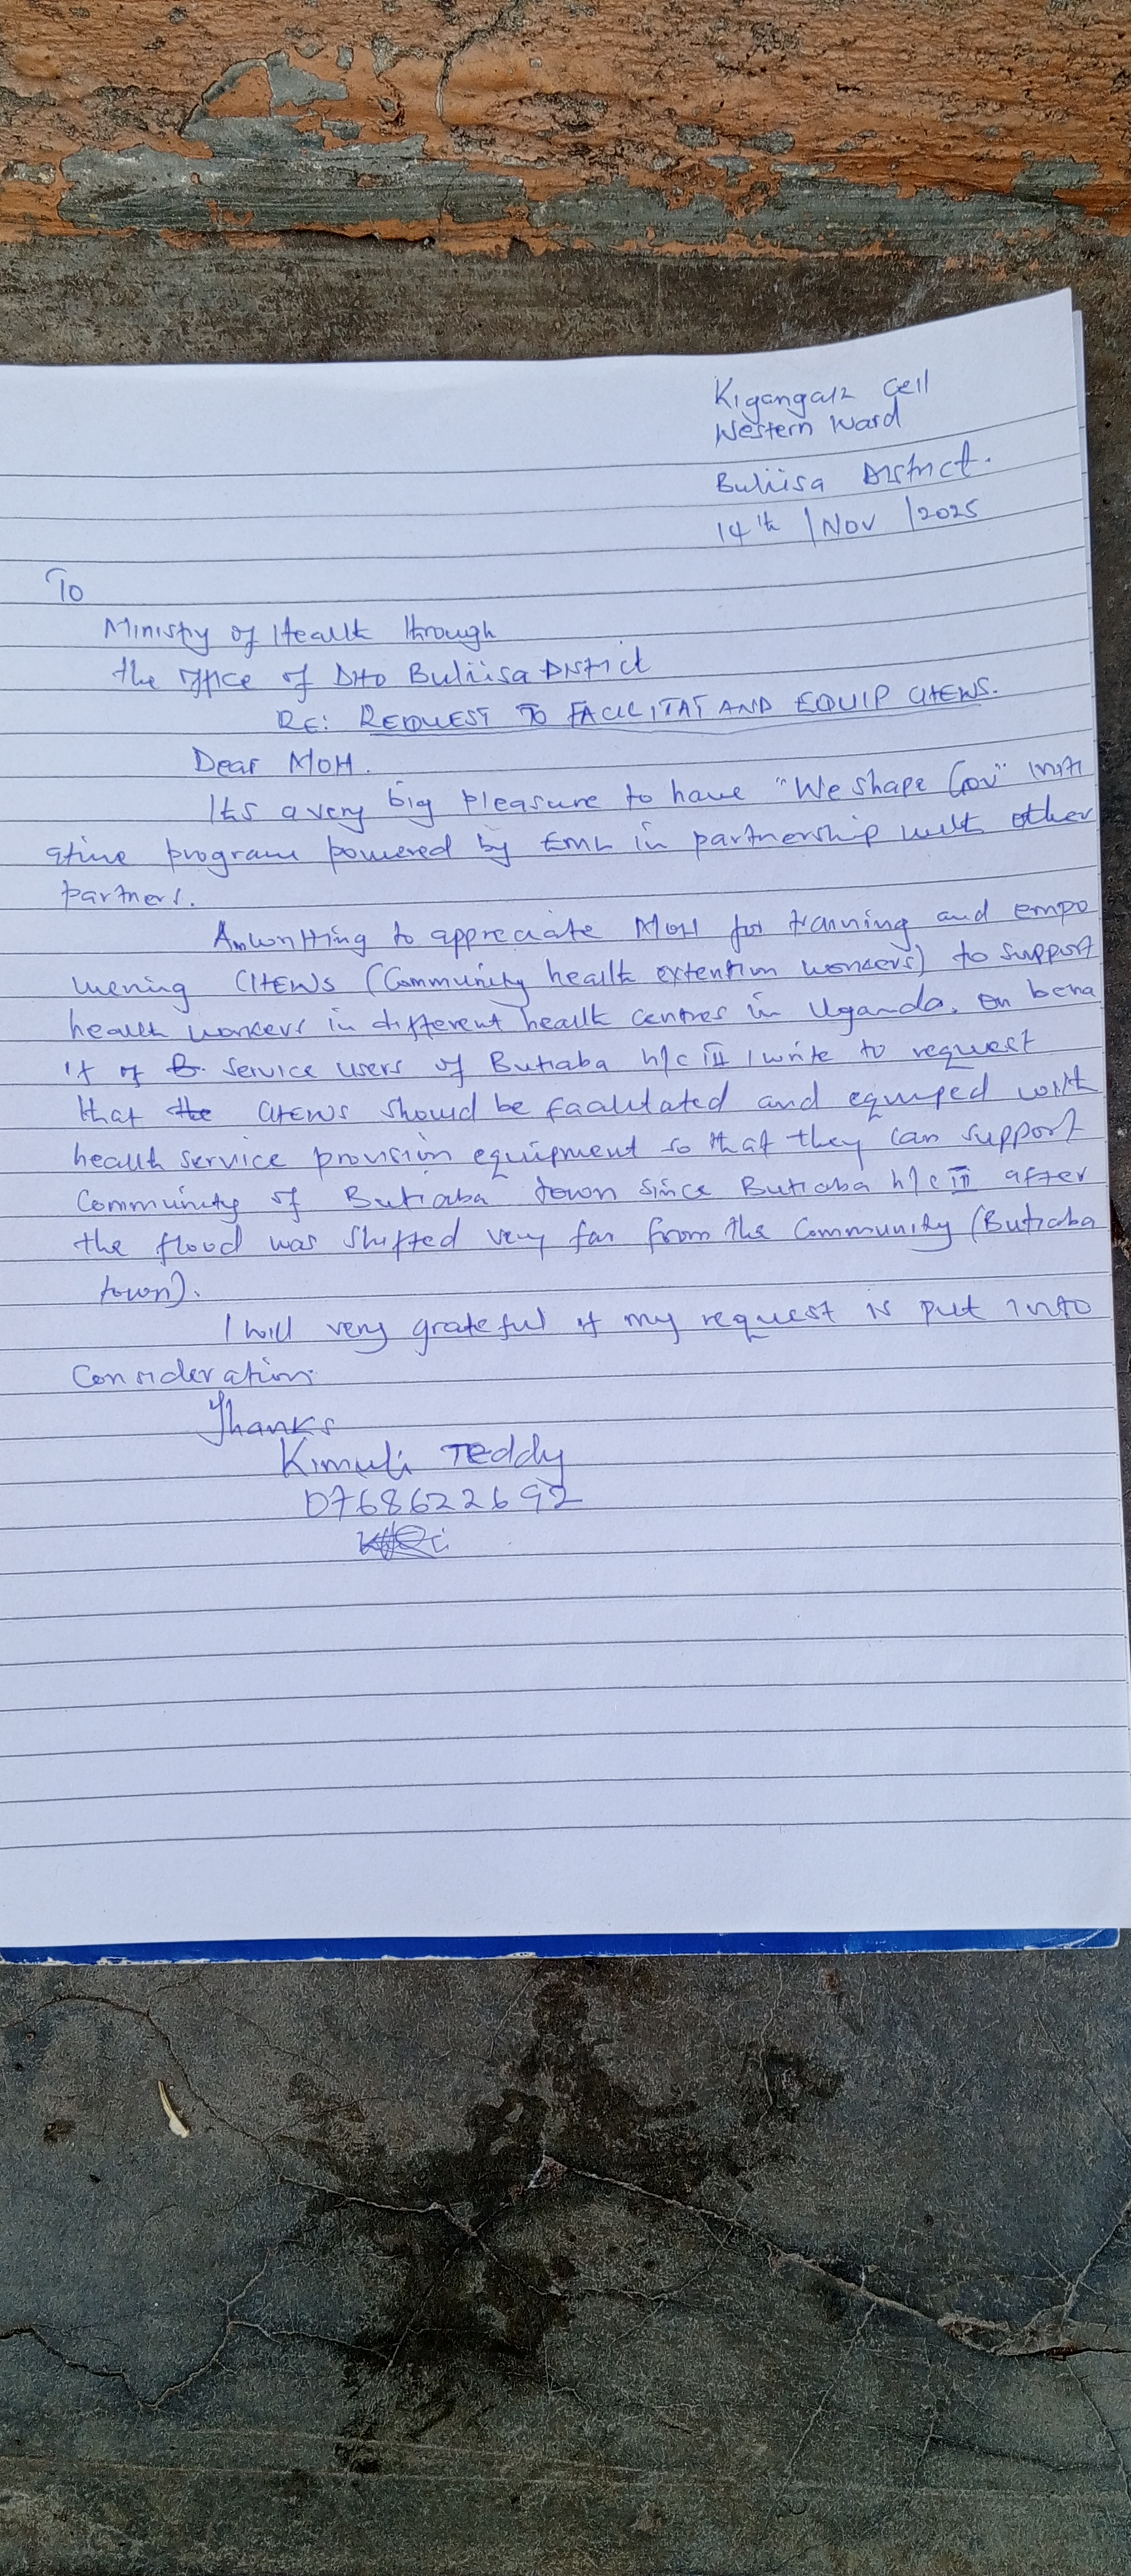 Kigangaiz Cell
Western Ward
Buliisa District.
14th /Nov /2025
To
Ministry of Health through
the office of DHO Buliisa District
RE: REQUEST TO FACILITAT AND EQUIP CHEWS.
Dear MOH.
Its a very big pleasure to have "We shape Gov" initi
ative program powered by EML in partnership with other
partners.
Am writting to appreciate MOH for tranning and empo
wering CHEWs (Community health extention workers) to support
health workers in different health centres in Uganda. On beha
lf of service users of Butiaba h/c III I write to request
that the CHEWS should be facilitated and equiped with
health service provision equipment so that they can support
Community of Butiaba town since Butiaba h/c III after
the flood was shifted very far from the Community (Butiaba
town).
I will very grateful if my request is put into
Consideration.
Thanks
Kimuli Teddy
0768622692